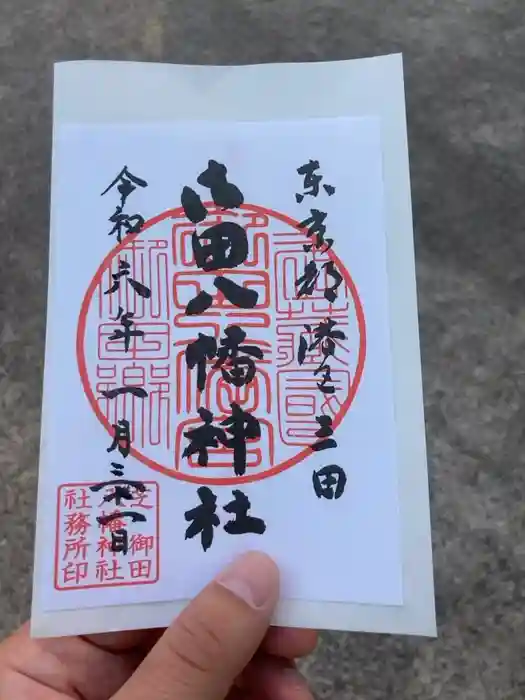 東京都港区三田
御田八幡神社
令和六年一月三十一日
武蔵国
御田八幡宮
御田郷
芝御田
八幡神社
社務所印